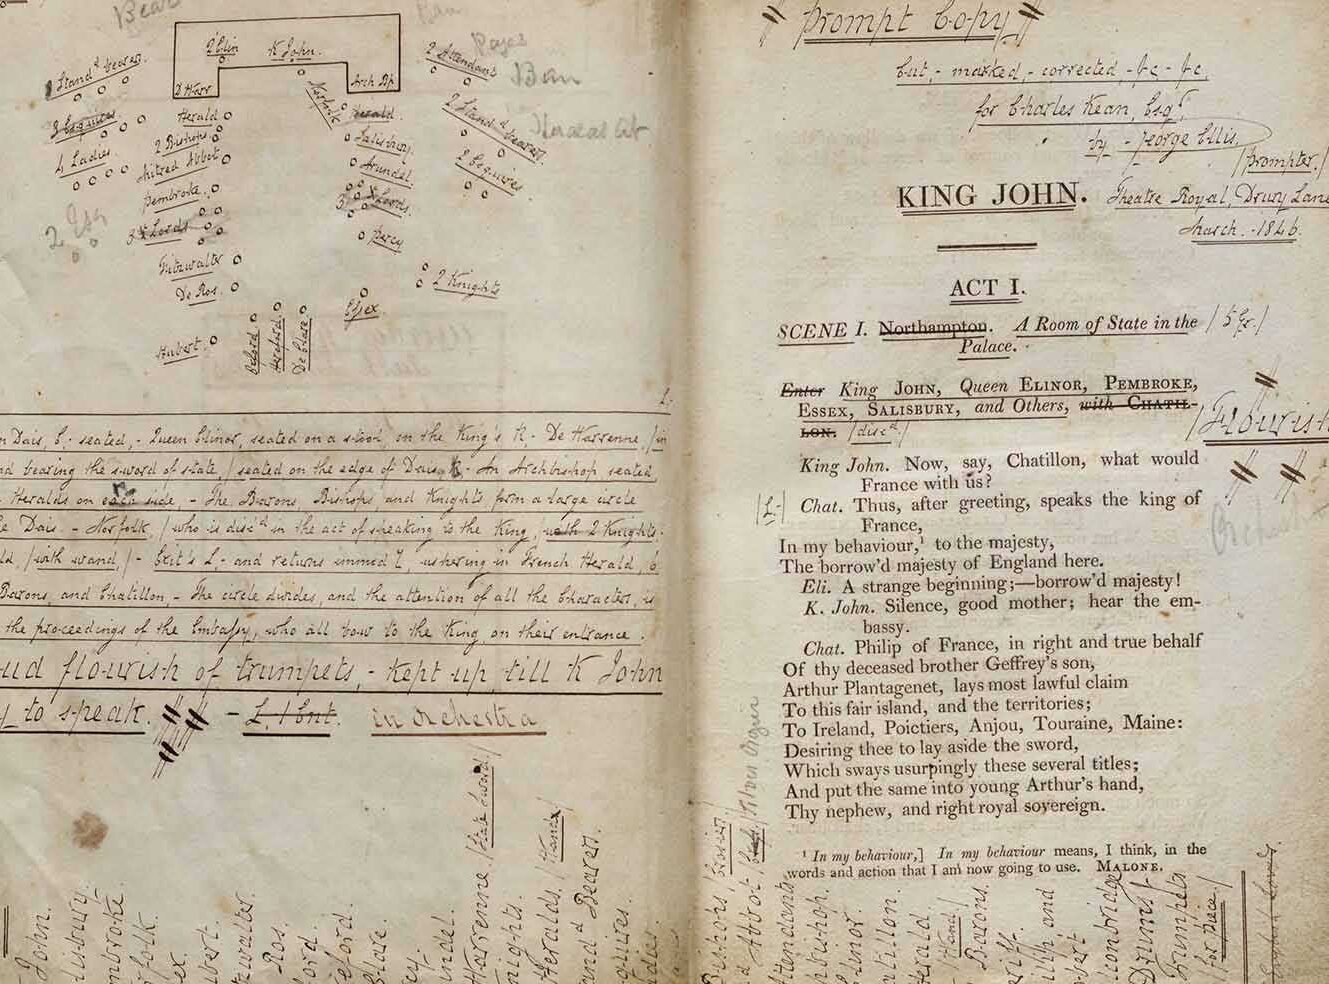 Bear
2 Elin
K John.
2 Attendants
Pages
Ban
Stand^d bearers.
D Warr
Arch Bp
Norfolk
3 Esquires
Herald
Herald.
2 Stand^d bearers
Heralds
4 Ladies.
2 Bishops
Salisbury.
Mitred Abbot
Arundel.
2 Esquires
Pembroke.
3 Lords.
2 Esq
3 Lords
Percy
Fitzwalter
2 Knights
De Ros.
Essex
Hubert.
Oxford
Hereford
De Clare.
L.
n Dais, C.- seated,- Queen Elinor, seated on a stool, on the King's R.- De Warrenne, /in
nd bearing the sword of state / seated on the edge of Dais R - An Archbishop seated
- Heralds on each side, - The Barons, Bishops, and Knights form a large circle
e Dais. - Norfolk, / who is disc^d in the act of speaking to the King, / with 2 Knights.
ld, / with wand, / - Exit's L,- and returns immed^y, ushering in French Herald, 6
Barons, and Chatillon,- The circle divides, and the attention of all the Characters, is
the proceedings of the Embassy, who all bow to the King on their entrance.
oud flourish of trumpets,- kept up till K John
y to speak. - L. 1 Ent. in Orchestra
John.
lisbury
mbroke.
rfolk.
sex.
bert.
tzwalter
Ros.
ford.
reford.
Clare.
cy.
undel.
Warrenne / State Sword /
nights.
Heralds / Wands /
and^d Bearers.
quires.
dies
Prompt Copy
Cut,- marked,- corrected,- &c - &c.
for Charles Kean, Esq^r.
by - George Ellis.
/ Prompter. /
KING JOHN. Theatre Royal, Drury Lane
March.-1846.
ACT I.
SCENE I. Northampton. A Room of State in the / 5 Gr. /
Palace.
Enter King JOHN, Queen ELINOR, PEMBROKE,
ESSEX, SALISBURY, and Others, with CHATIL-
LON. / disc^d / / Flourish
King John. Now, say, Chatillon, what would
France with us?
/ L / Chat. Thus, after greeting, speaks the king of
France,
Orchest
In my behaviour,¹ to the majesty,
The borrow'd majesty of England here.
Eli. A strange beginning;—borrow'd majesty!
K. John. Silence, good mother; hear the em-
bassy.
Chat. Philip of France, in right and true behalf
Of thy deceased brother Geffrey's son,
Arthur Plantagenet, lays most lawful claim
To this fair island, and the territories;
To Ireland, Poictiers, Anjou, Touraine, Maine:
Desiring thee to lay aside the sword,
Which sways usurpingly these several titles;
And put the same into young Arthur's hand,
Thy nephew, and right royal sovereign.
¹ In my behaviour,] In my behaviour means, I think, in the
words and action that I am now going to use. MALONE.
Bishops / Crosier /
d Abbot
Attendants
chbishop.
Elinor.
atillon.
Herald. / Wand /
Barons.
riff.
ilip and
bert
lconbridge
Drums
Trumpets / for Piece /